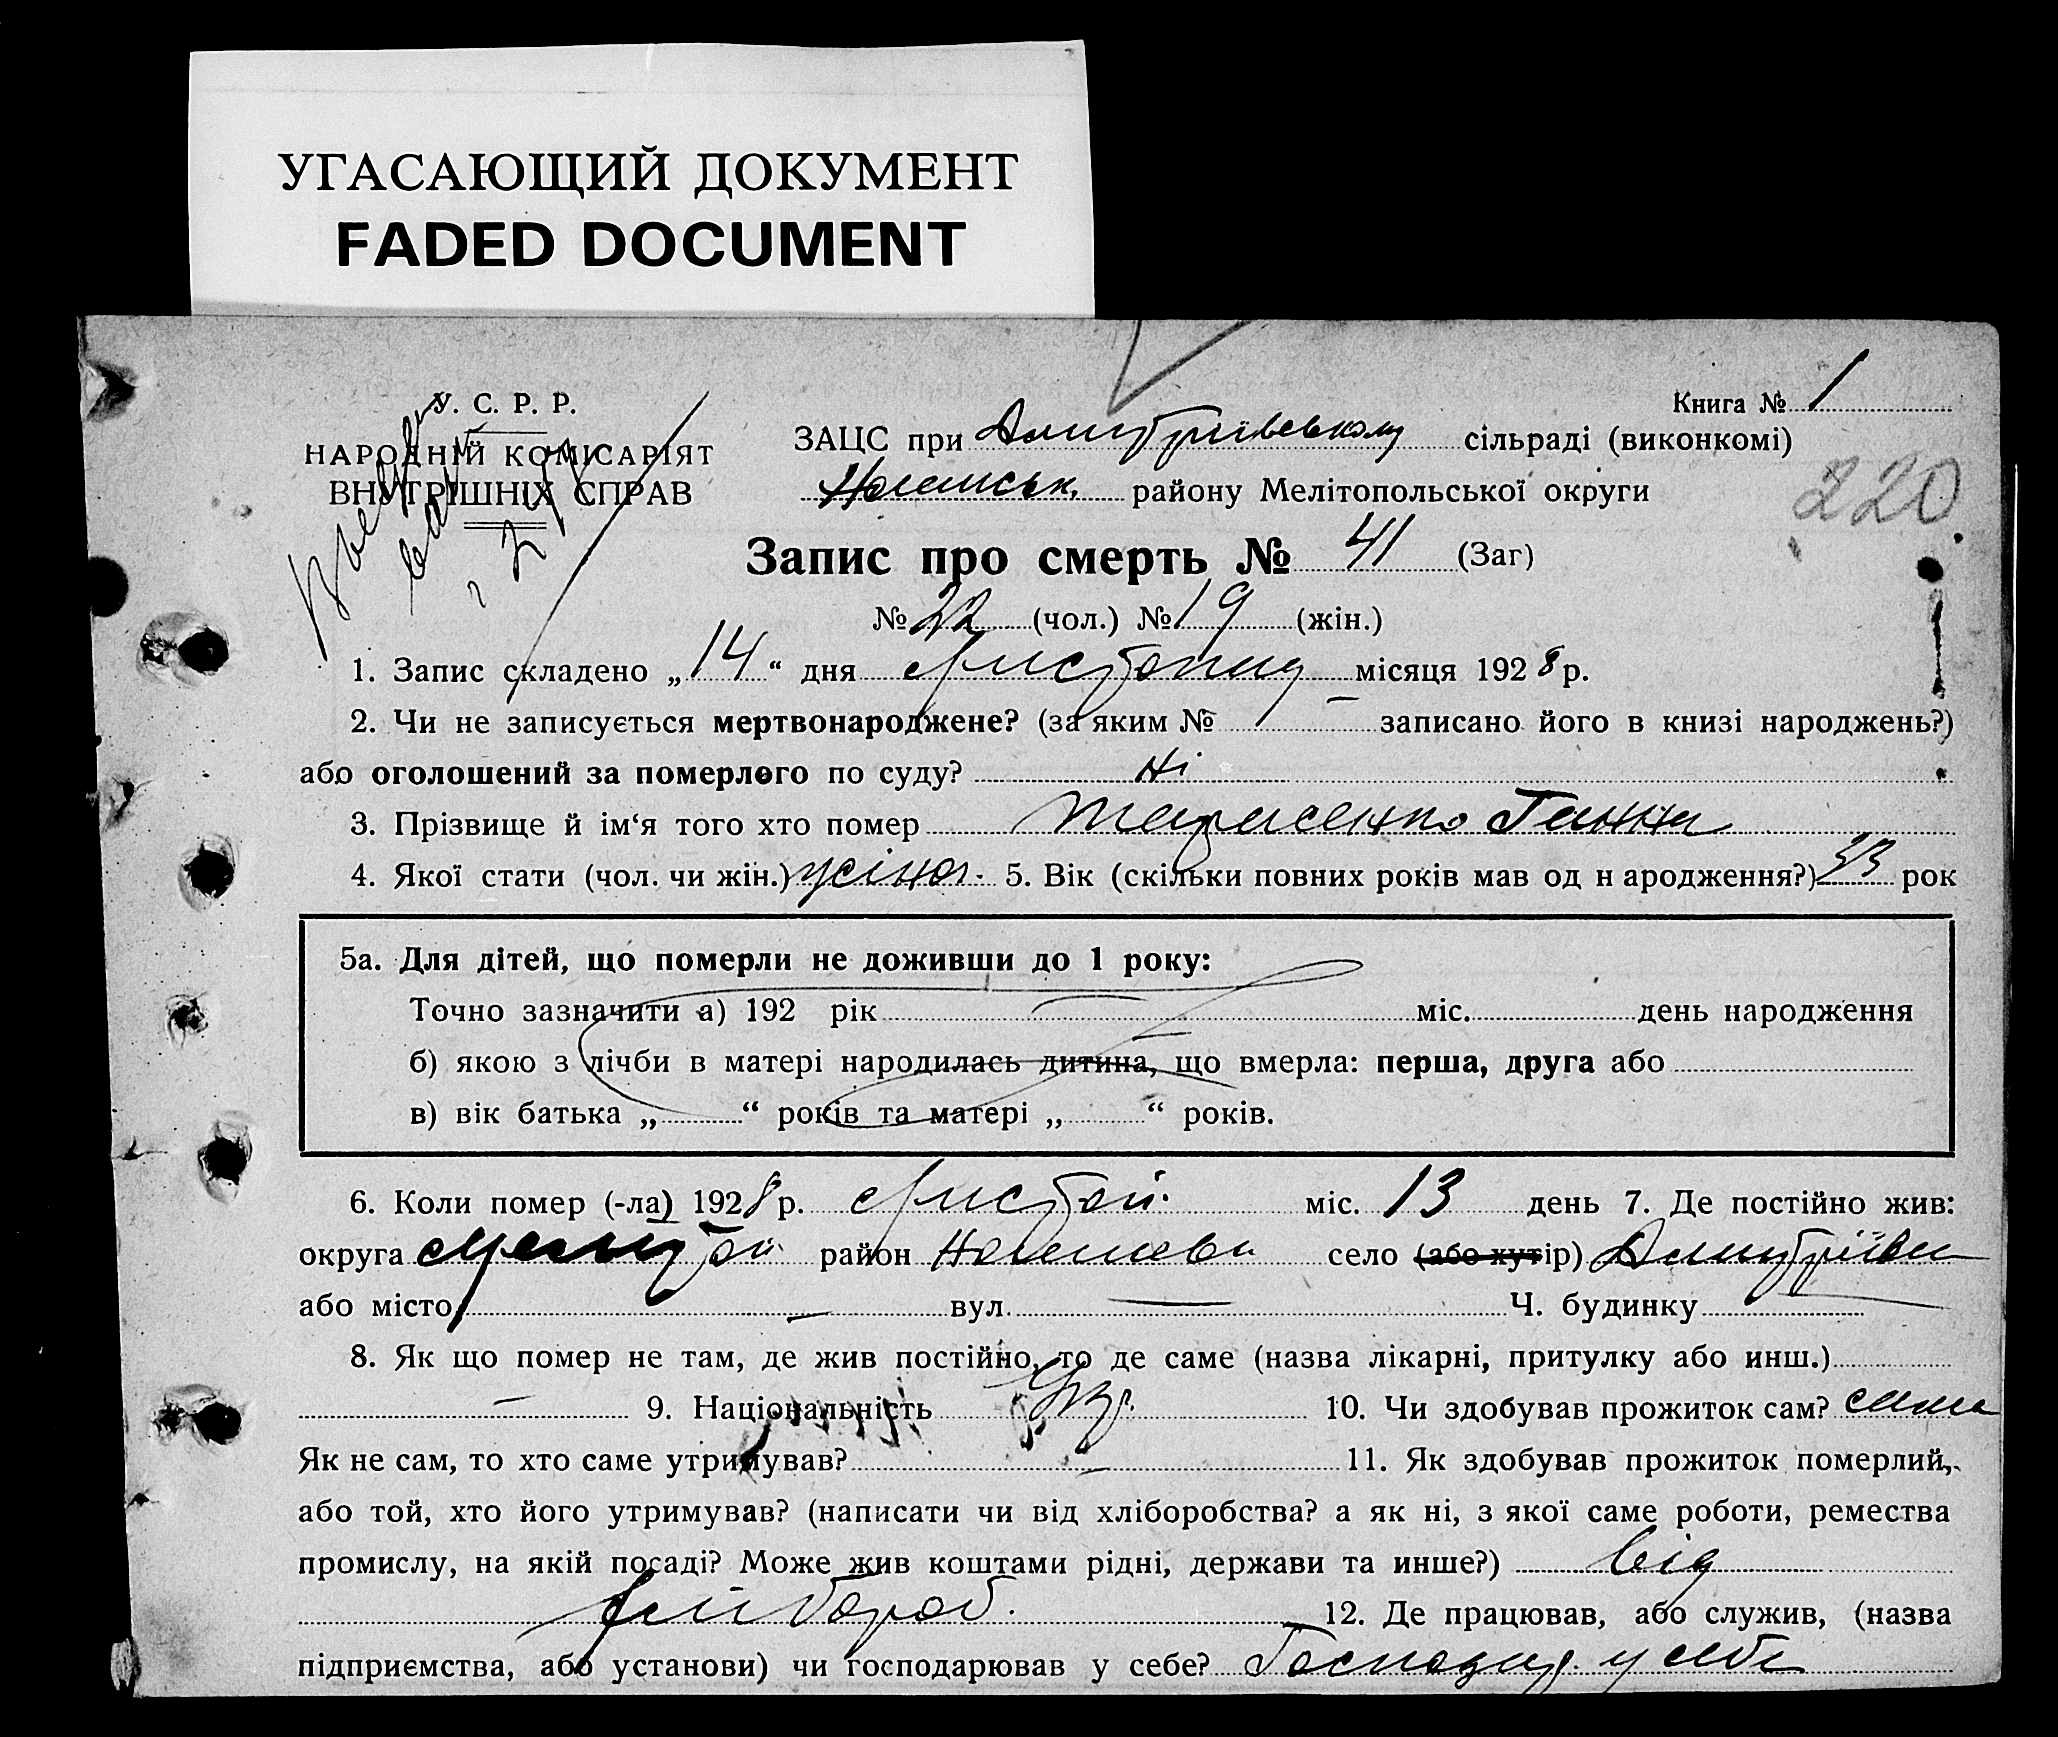 УГАСАЮЩИЙ ДОКУМЕНТ
FADED DOCUMENT
У. С. Р. Р.
НАРОДНІЙ КОМІСАРІЯТ
ВНУТРІШНІХ СПРАВ
Книга № 1
ЗАЦС при Дмитріївському сільраді (виконкомі)
району Мелітопольської округи
220
Запис про смерть № 41 (Заг)
№ 22 (чол.) № 19 (жін.)
1. Запис складено „ 14 “ дня Листопад місяця 1928 р.
2. Чи не записується мертвонароджене? (за яким № — записано його в книзі народжень?)
або оголошений за померлого по суду? ні
3. Прізвище й ім‘я того хто помер Тарасенко Ганна
4. Якої стати (чол. чи жін.) жіноч. 5. Вік (скільки повних років мав од н ародження?) 33 рок
5а. Для дітей, що померли не доживши до 1 року:
Точно зазначити а) 192 рік міс. день народження
б) якою з лічби в матері народилась дитина, що вмерла: перша, друга або
в) вік батька „ “ років та матері „ “ років.
6. Коли помер (-ла) 1928 р. Листоп. міс. 13 день 7. Де постійно жив:
округа Меліт район село (або хутір) Дмитріївка
або місто — вул. — Ч. будинку —
8. Як що помер не там, де жив постійно, то де саме (назва лікарні, притулку або инш.)
— 9. Національність Укр. 10. Чи здобував прожиток сам? сама
Як не сам, то хто саме утримував? — 11. Як здобував прожиток померлий,
або той, хто його утримував? (написати чи від хліборобства? а як ні, з якої саме роботи, ремества
промислу, на якій посаді? Може жив коштами рідні, держави та инше?) від
хлібороб. 12. Де працював, або служив, (назва
підприємства, або установи) чи господарював у себе? Господар. у себе